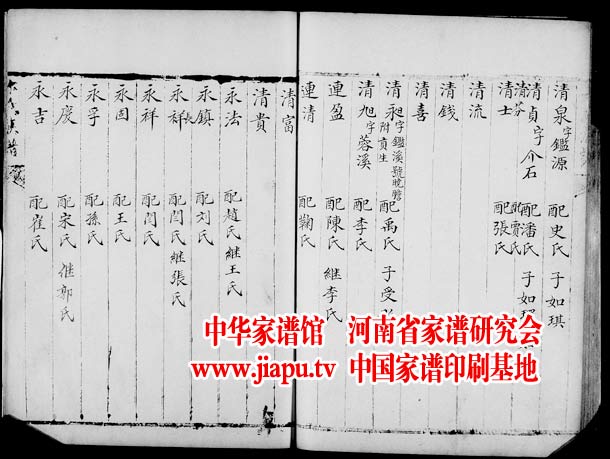 清泉字鑑源 配史氏 子如琪
清貞字介石 配潘氏 子如
清芬 賈氏
清士 配張氏
清流
清錢
清喜
清昶字鑑溪號曉瞻附貢生 配禹氏 子受
清旭字蓉溪 配李氏
連盈 配陳氏 継李氏
連清 配鞠氏
清富
清貴
永法 配趙氏 継王氏
永鎮 配刘氏
永祥 配閆氏 継張氏
永祥 配閆氏
永固 配王氏
永孚 配孫氏
永慶 配宋氏 継郭氏
永吉 配崔氏
族譜
中华家谱馆 河南省家谱研究会
www.jiapu.tv 中国家谱印刷基地